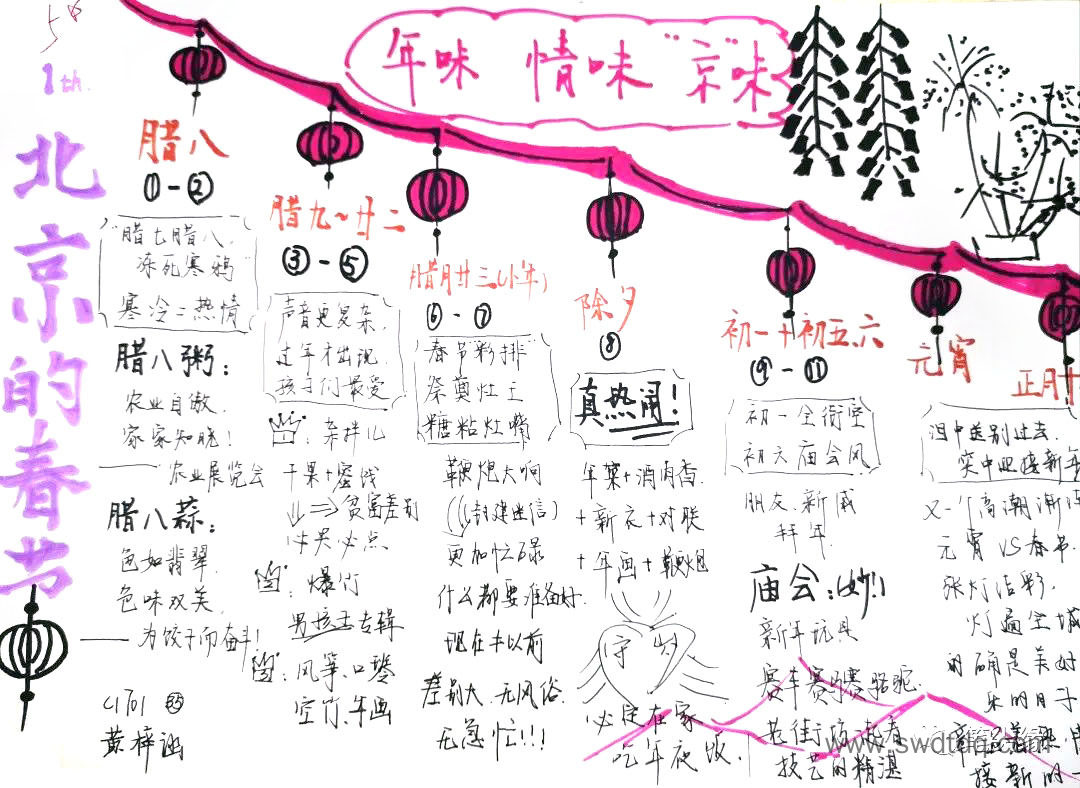 5☆
1th.
北京的春节
年味 情味 "京"味
腊八
①-②
"腊七腊八,
冻死寒鸦"
寒冷=热情
腊八粥:
农业自傲.
家家知晓!
——农业展览会
腊八蒜:
色如翡翠.
色味双美.
——为饺子而奋斗!
黄梓涵
腊九~廿二
③-⑤
声音更复杂,
过年才出现,
孩子们最爱
杂拌儿
干果+蜜饯
贫富差别
必点
爆竹
男孩子专辑
风筝、口琴
空竹、年画
腊月廿三(小年)
⑥-⑦
"春节彩排"
祭奠灶王
糖粘灶嘴
鞭炮大响
(封建迷信)
更加忙碌
什么都要准备好.
现在与以前
差别大、无风俗.
无急忙!!!
除夕
⑧
真热闹!
年菜+酒肉香.
+新衣+对联
+年画+鞭炮
守岁
必定在家
吃年夜饭.
初一→初五、六
⑨-⑪
初一全街空
初六庙会风
朋友、新戚
拜年
庙会:(妙!)
新年玩具
赛车赛马赛骆驼.
技艺的精湛
元宵
正月十
泪中送别过去.
笑中迎接新年
又一个高潮渐
元宵VS春节
张灯结彩.
灯遍全城
的确是美好
乐的日子
接新的一
www.swdtaa.com